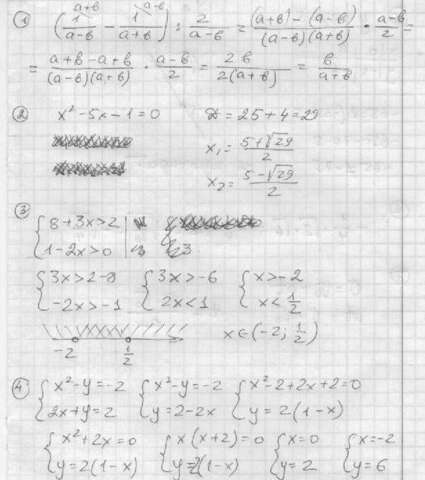 ① (1/(a-b) - 1/(a+b)) : 2/(a-b) = ((a+b) - (a-b))/((a-b)(a+b)) · (a-b)/2 =
= (a+b-a+b)/((a-b)(a+b)) · (a-b)/2 = 2b/(2(a+b)) = b/(a+b)
② x² - 5x - 1 = 0 D = 25 + 4 = 29
x₁ = (5+√29)/2
x₂ = (5-√29)/2
③
{ 8 + 3x > 2
{ 1 - 2x > 0
{ 3x > 2-8 { 3x > -6 { x > -2
{ -2x > -1 { 2x < 1 { x < 1/2
-2 1/2 x ∈ (-2; 1/2)
④ { x² - y = -2 { x² - y = -2 { x² - 2 + 2x + 2 = 0
{ 2x + y = 2 { y = 2 - 2x { y = 2(1-x)
{ x² + 2x = 0 { x(x+2) = 0 { x = 0 { x = -2
{ y = 2(1-x) { y = 2(1-x) { y = 2 { y = 6